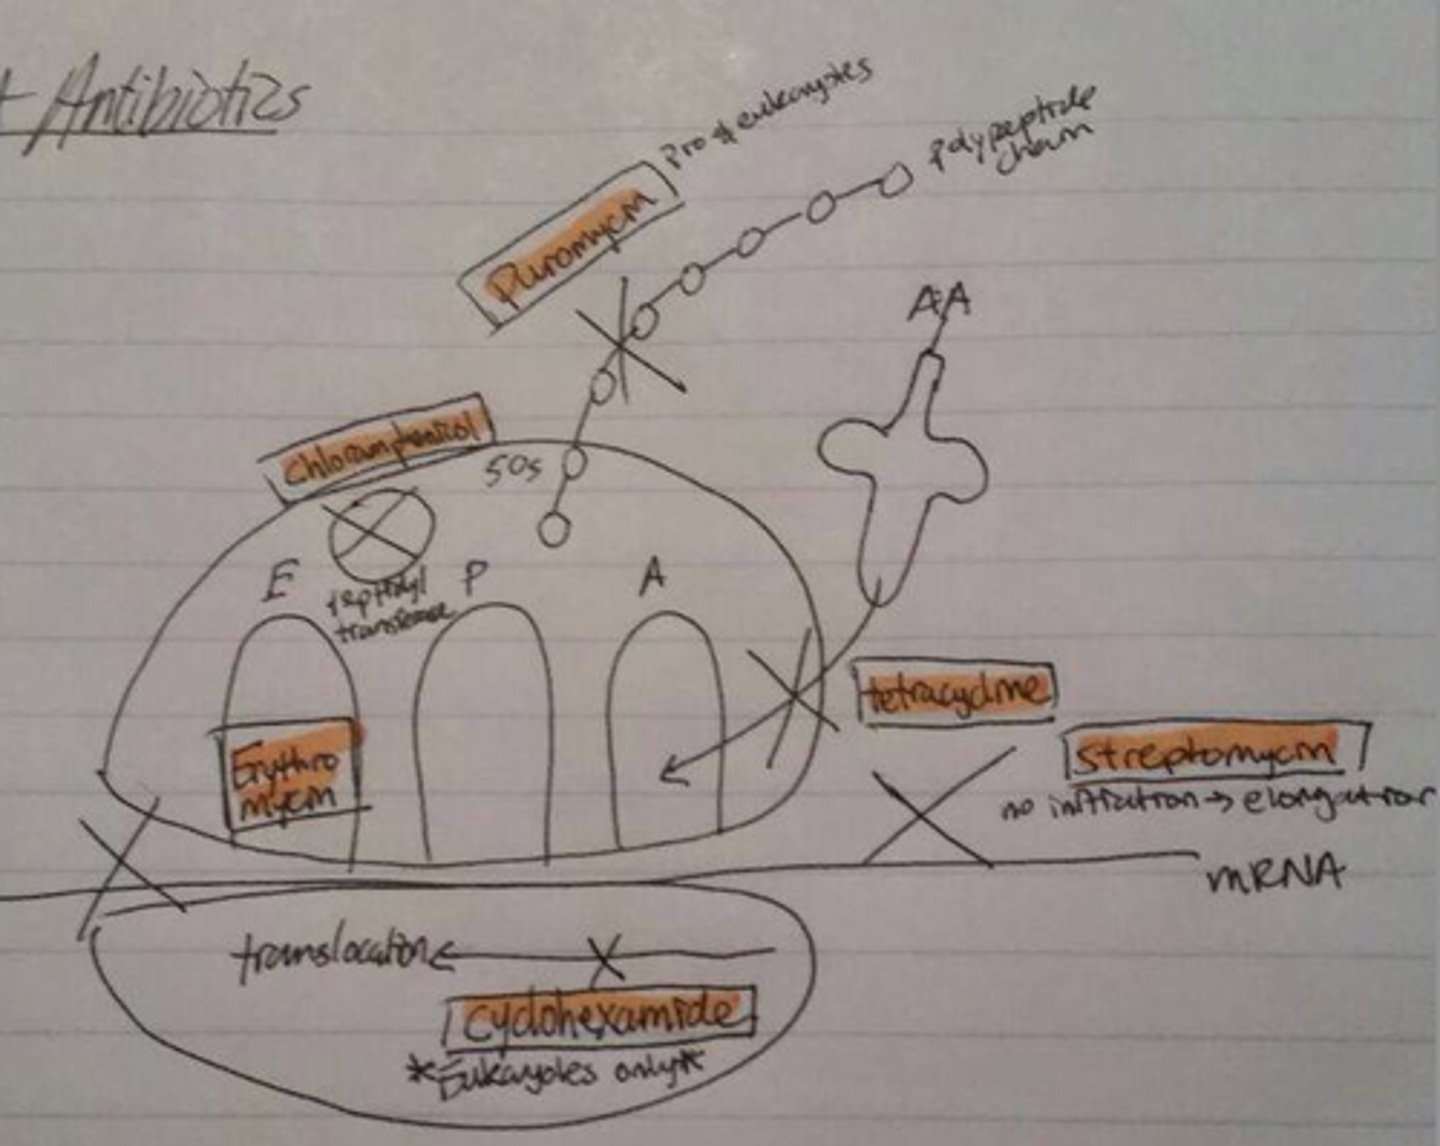 + Antibiotics
Pro & eukaryotes
Puromycin
polypeptide
chain
AA
Chloramphenicol
50s
E
P
A
peptidyl
transferase
tetracycline
Erythro
mycin
streptomycin
no initiation → elongation
mRNA
translocation
cyclohexamide
*Eukaryotes only*